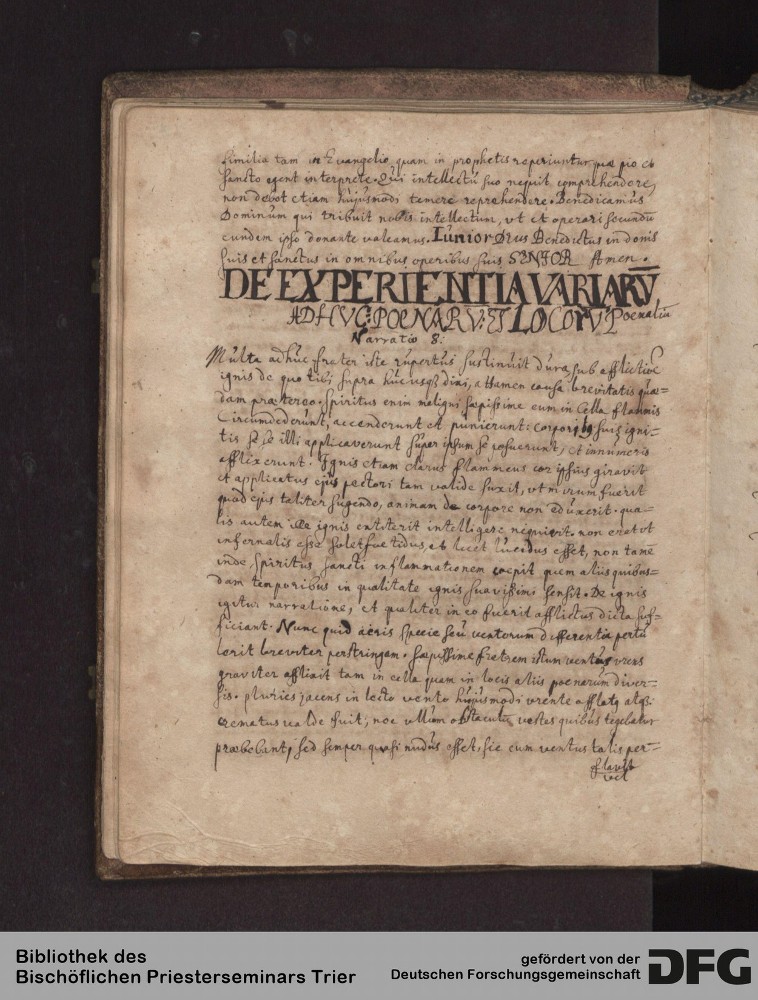 similia tam in Evangelio quam in prophetis reperiuntur, quæ pio et
sancto egent interprete. Qui intellectu suo nequit comprehendere,
non debet etiam hujusmodi temere reprehendere. Benedicamus
Dominum qui tribuit nobis intellectum, vt et operari secundū
eundem ipso donante valeamus. Iunior Deus Benedictus in donis
suis et sanctus in omnibus operibus suis SENIOR Amen.
DE EXPERIENTIA VARIARŪ
ADHVC POENARV: ET LOCORV Poenaliū
Narratio 8:
Multa adhuc frater iste rupertus sustinuit dura sub afflictioe
ignis de quo tibi supra hucusqȝ dixi, attamen causa brevitatis quæ=
dam prætereo. Spiritus enim maligni sæpissime eum in Cella flammis
Circumdederunt, accenderunt et punierunt: corporibs suis igni=
tis se se illi applicaverunt super ipsum se posuerunt, et innumeris
afflixerunt. Ignis etiam clarus flammeus cor ipsius giravit
et applicatus ejus pectori tam valide suxit, vt mirum fuerit
quod ejus taliter sugendo, animam de corpore non eduxerit. qua=
lis autem ille ignis extiterit intelligere nequivit. non erat vt
infernalis esse solet foetidus, et licet lucidus esset, non tamē
inde, Spiritus sancti inflammationem coepit quem aliis quibus=
dam temporibus in qualitate ignis suavissimi sensit. De ignis
igitur narratione, et qualiter in eo fuerit afflictus dicta suf=
ficiant. Nunc quid aeris specie seu ventorum differentia pertu
lerit breviter perstringam. sæpissime fratrem istum ventus vrens
graviter afflixit tam in cella quam in locis aliis poenarum diver=
sis. pluries jacens in lecto vento hujusmodi vrente afflatq atqȝ
crematus valde fuit; nec vllum obstaculū vestes quibus tegebatur
præbebant, sed semper quasi nudus esset, sic eum ventus talis per=
flavit
vel
Bibliothek des
Bischöflichen Priesterseminars Trier
gefördert von der
Deutschen Forschungsgemeinschaft
DFG